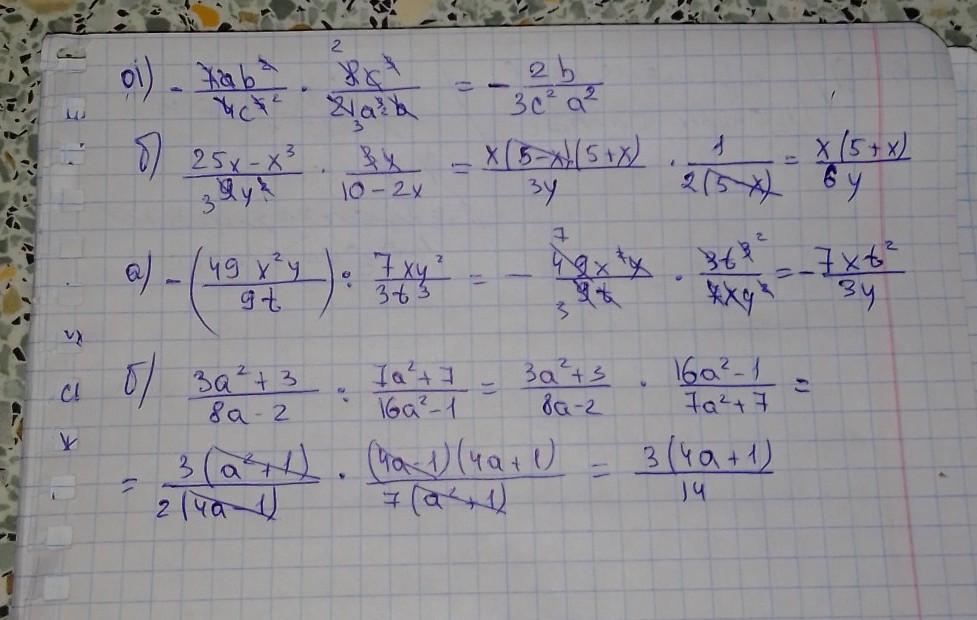 а) - 7ab²/4c⁵ · 8c³/21a³b = - 2b/3c²a²
б) 25x-x³/9y² · 3y/10-2x = x(5-x)(5+x)/3y · 1/2(5-x) = x(5+x)/6y
а) - (49x²y/9t) : 7xy²/3t³ = - 49x²y/9t · 3t³/7xy² = - 7xt²/3y
б) 3a²+3/8a-2 : 7a²+7/16a²-1 = 3a²+3/8a-2 · 16a²-1/7a²+7 =
= 3(a²+1)/2(4a-1) · (4a-1)(4a+1)/7(a²+1) = 3(4a+1)/14